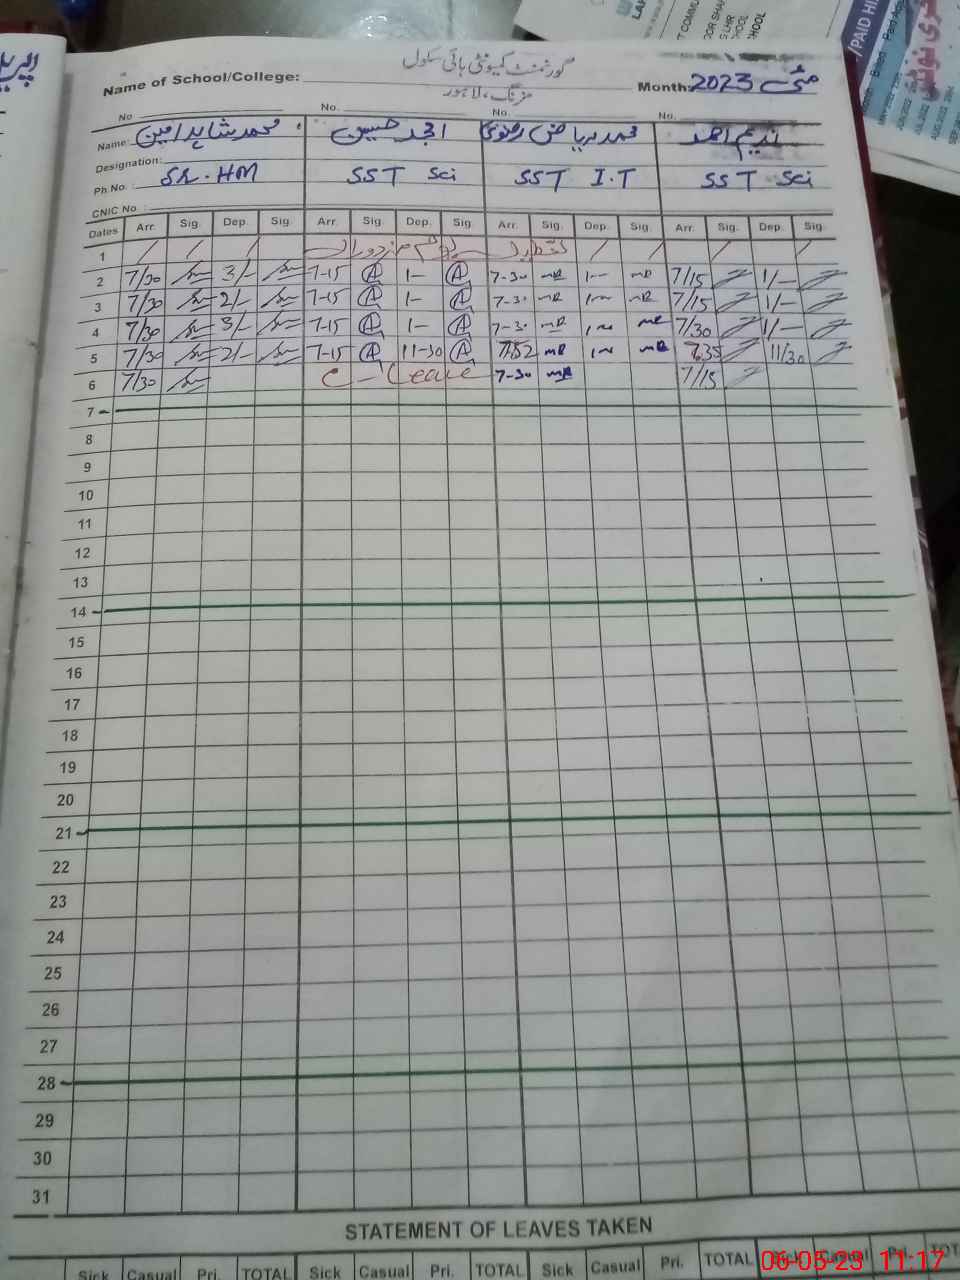 اپریل
گورنمنٹ کمیونٹی ہائی سکول
Name of School/College:
مزنگ، لاہور
Month: مئی 2023
No. No. No. No.
Name: محمد شاہد امین امجد حسین محمد ریاض رضوی ندیم احمد
Designation:
Ph.No. : SR. HM SST Sci SST I.T SST Sci
CNIC No :
Dates Arr. Sig. Dep. Sig. Arr. Sig. Dep. Sig. Arr. Sig. Dep. Sig. Arr. Sig. Dep. Sig.
1 / / / تعطیل یوم مزدوراں / / / / / /
2 7/30 3/- 7-15 A 1- A 7-30 MR 1- MR 7/15 1/-
3 7/30 2/- 7-15 A 1- A 7-30 MR 1- MR 7/15 1/-
4 7/30 3/- 7-15 A 1- A 7-30 MR 1- MR 7/30 1/-
5 7/30 2/- 7-15 A 11-30 A 7:52 MR 1- MR 7:35 11/30
6 7/30 C-Leave 7-30 MR 7/15
7
8
9
10
11
12
13
14
15
16
17
18
19
20
21
22
23
24
25
26
27
28
29
30
31
STATEMENT OF LEAVES TAKEN
Sick Casual Pri. TOTAL Sick Casual Pri. TOTAL Sick Casual Pri. TOTAL Sick Casual Pri. TOT
06-05-23 11:17